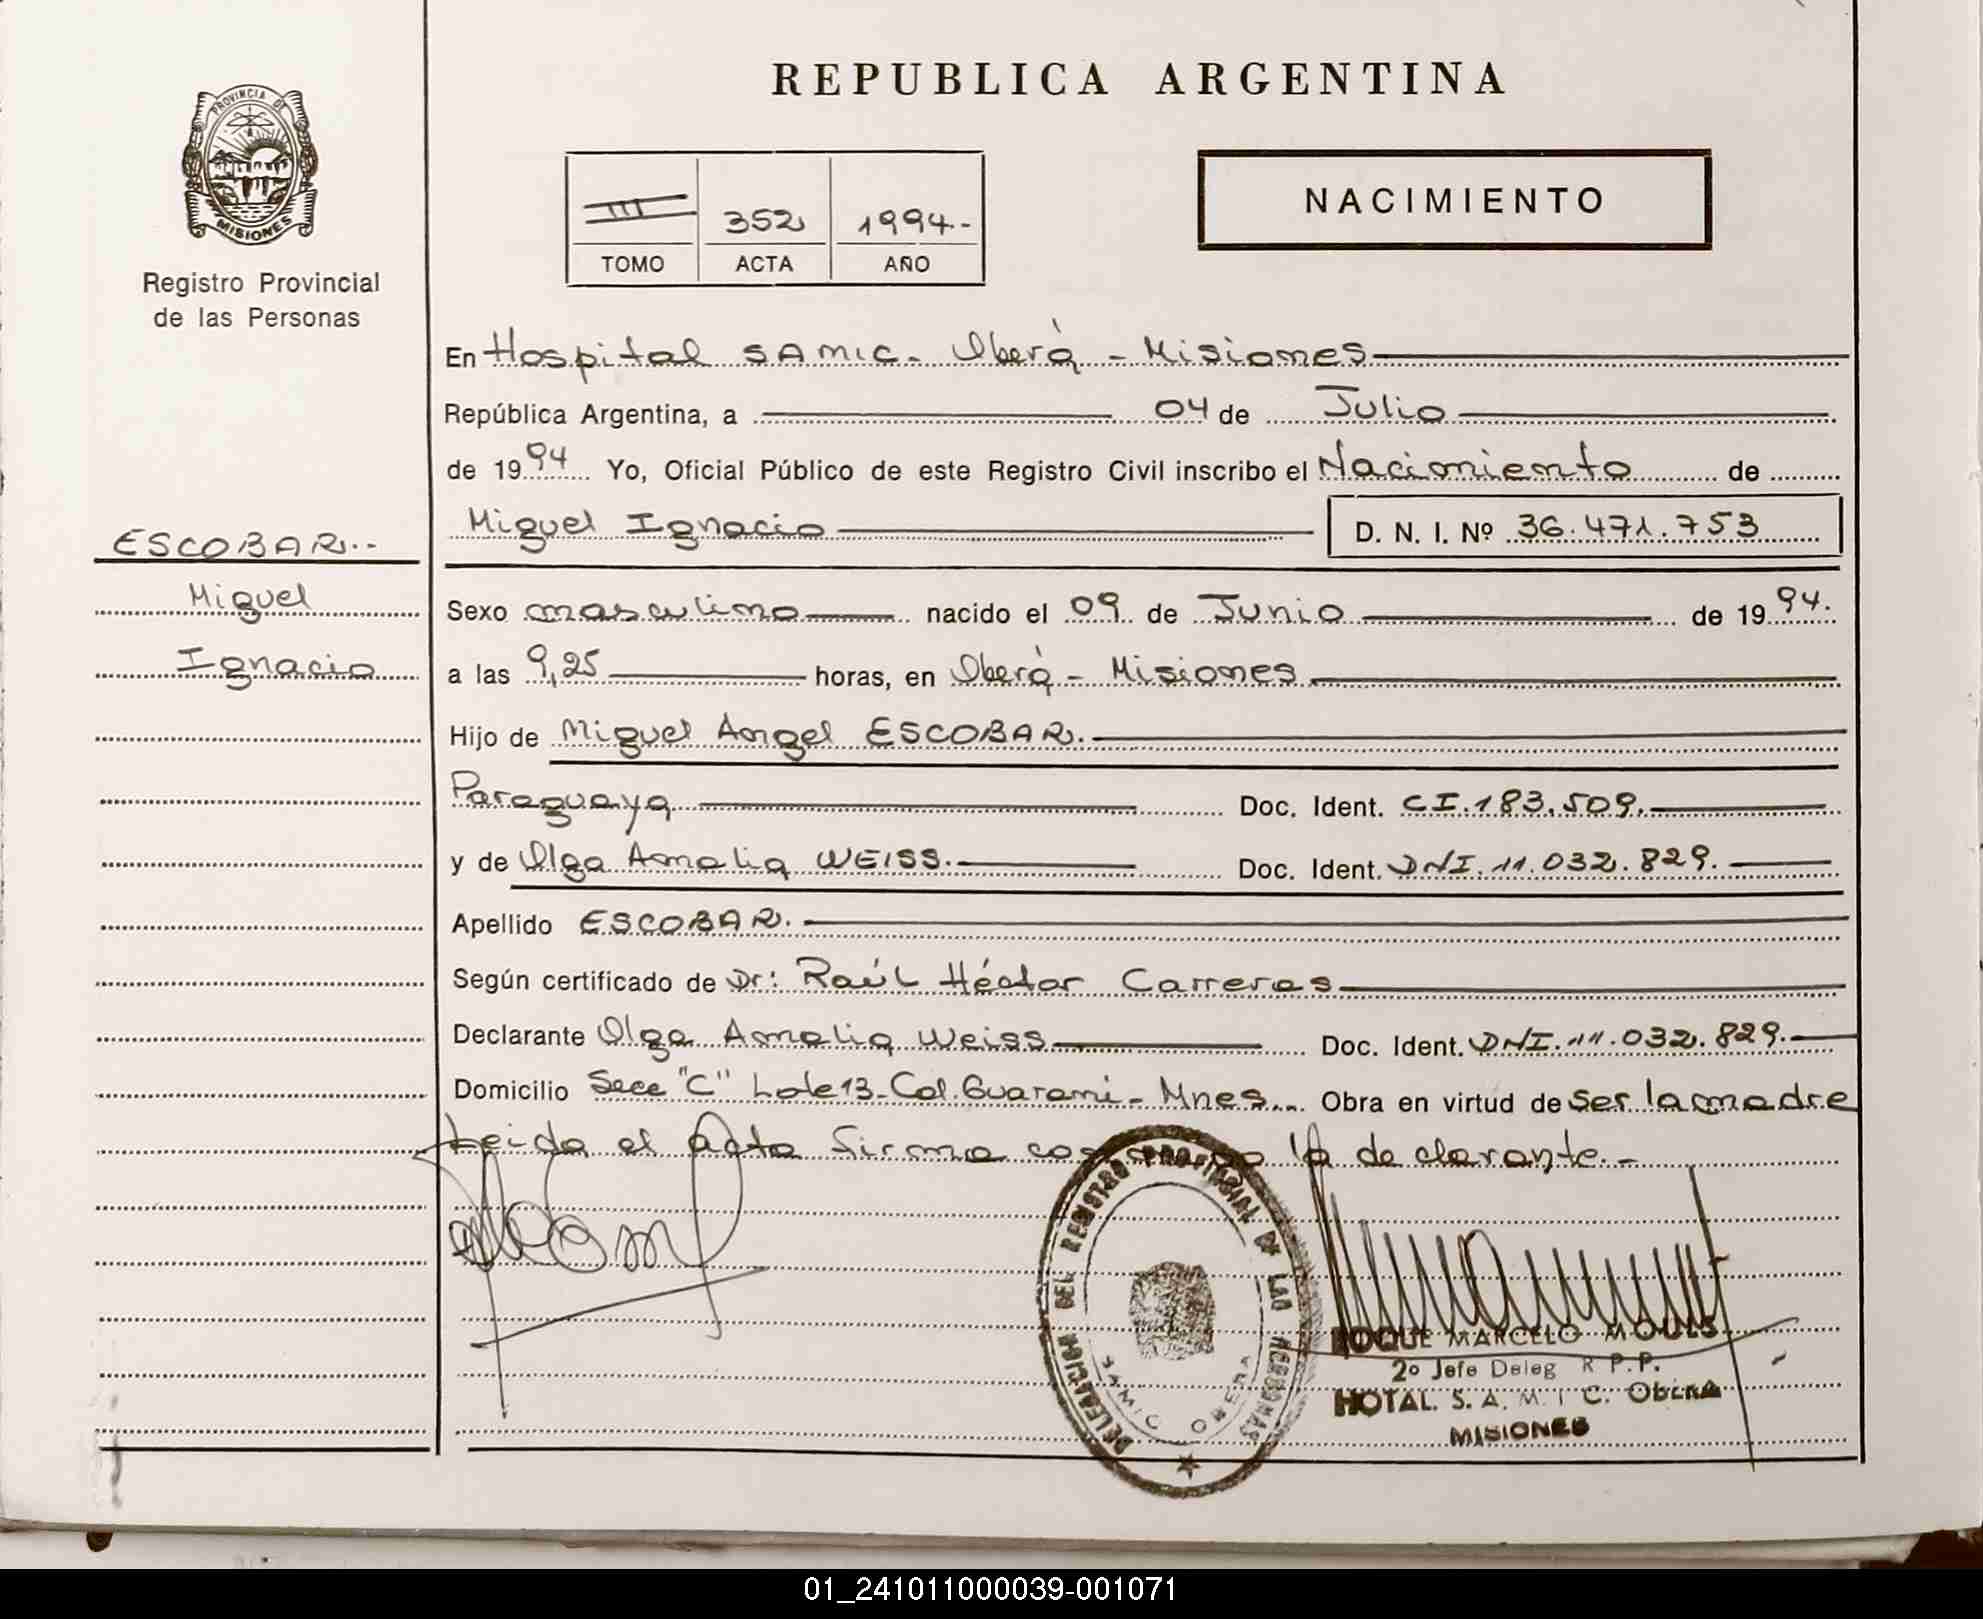 REPUBLICA ARGENTINA
PROVINCIA DE
MISIONES
Registro Provincial
de las Personas
III 352 1994.-
TOMO ACTA AÑO
NACIMIENTO
En Hospital SAMIC - Oberá - Misiones
República Argentina, a 04 de Julio
de 1994 Yo, Oficial Público de este Registro Civil inscribo el Nacimiento de
Miguel Ignacio D. N. I. Nº 36.471.753
ESCOBAR.-
Miguel
Ignacio
Sexo masculino nacido el 09 de Junio de 1994.
a las 9,25 horas, en Oberá - Misiones
Hijo de Miguel Angel ESCOBAR.
Paraguaya Doc. Ident. CI.183.509.
y de Olga Amalia WEISS. Doc. Ident. DNI.11.032.829.
Apellido ESCOBAR.
Según certificado de Dr: Raúl Héctor Carreras
Declarante Olga Amalia Weiss Doc. Ident. DNI.11.032.829.
Domicilio Secc "C" Lote 13-Col.Guarani- Mnes. Obra en virtud de ser la madre
Leida el acta firma la declarante.-
DELEGACION DEL REGISTRO PROVINCIAL DE LAS PERSONAS
SAMIC OBERA
ROQUE MARCELO
2º Jefe Deleg R.P.P.
HOTAL. S. A. M. I C. OBERA
MISIONES
01_241011000039-001071